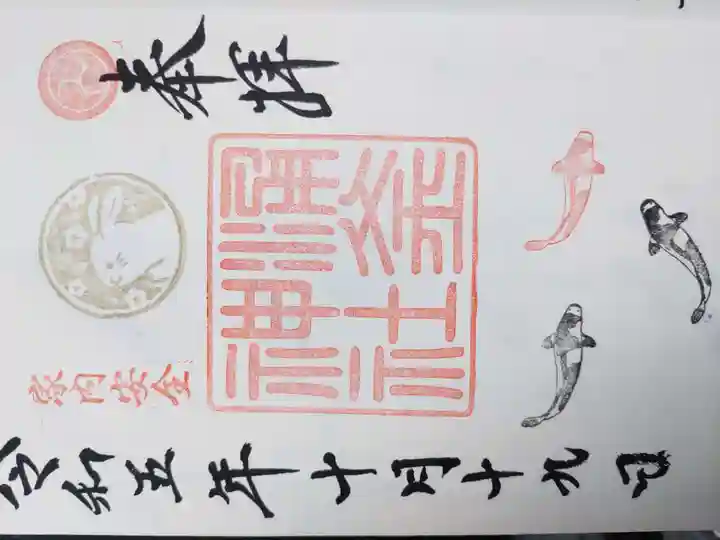 奉拝
神社
家内安全
令和五年十月十九日